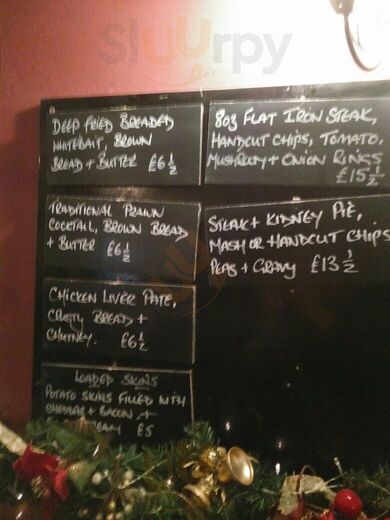 Sluurpy
DEEP FRIED BREADED
WHITEBAIT, BROWN
BREAD + BUTTER £6 1/2
TRADITIONAL PRAWN
COCKTAIL, BROWN BREAD
+ BUTTER £6 1/2
CHICKEN LIVER PATE,
CRUSTY BREAD +
CHUTNEY. £6 1/2
LOADED SKINS
POTATO SKINS FILLED WITH
CHEDDAR + BACON, +
CREAM £5
8oz FLAT IRON STEAK,
HANDCUT CHIPS, TOMATO,
MUSHROOM + ONION RINGS
£15 1/2
STEAK + KIDNEY PIE,
MASH OR HANDCUT CHIPS
PEAS + GRAVY £13 1/2